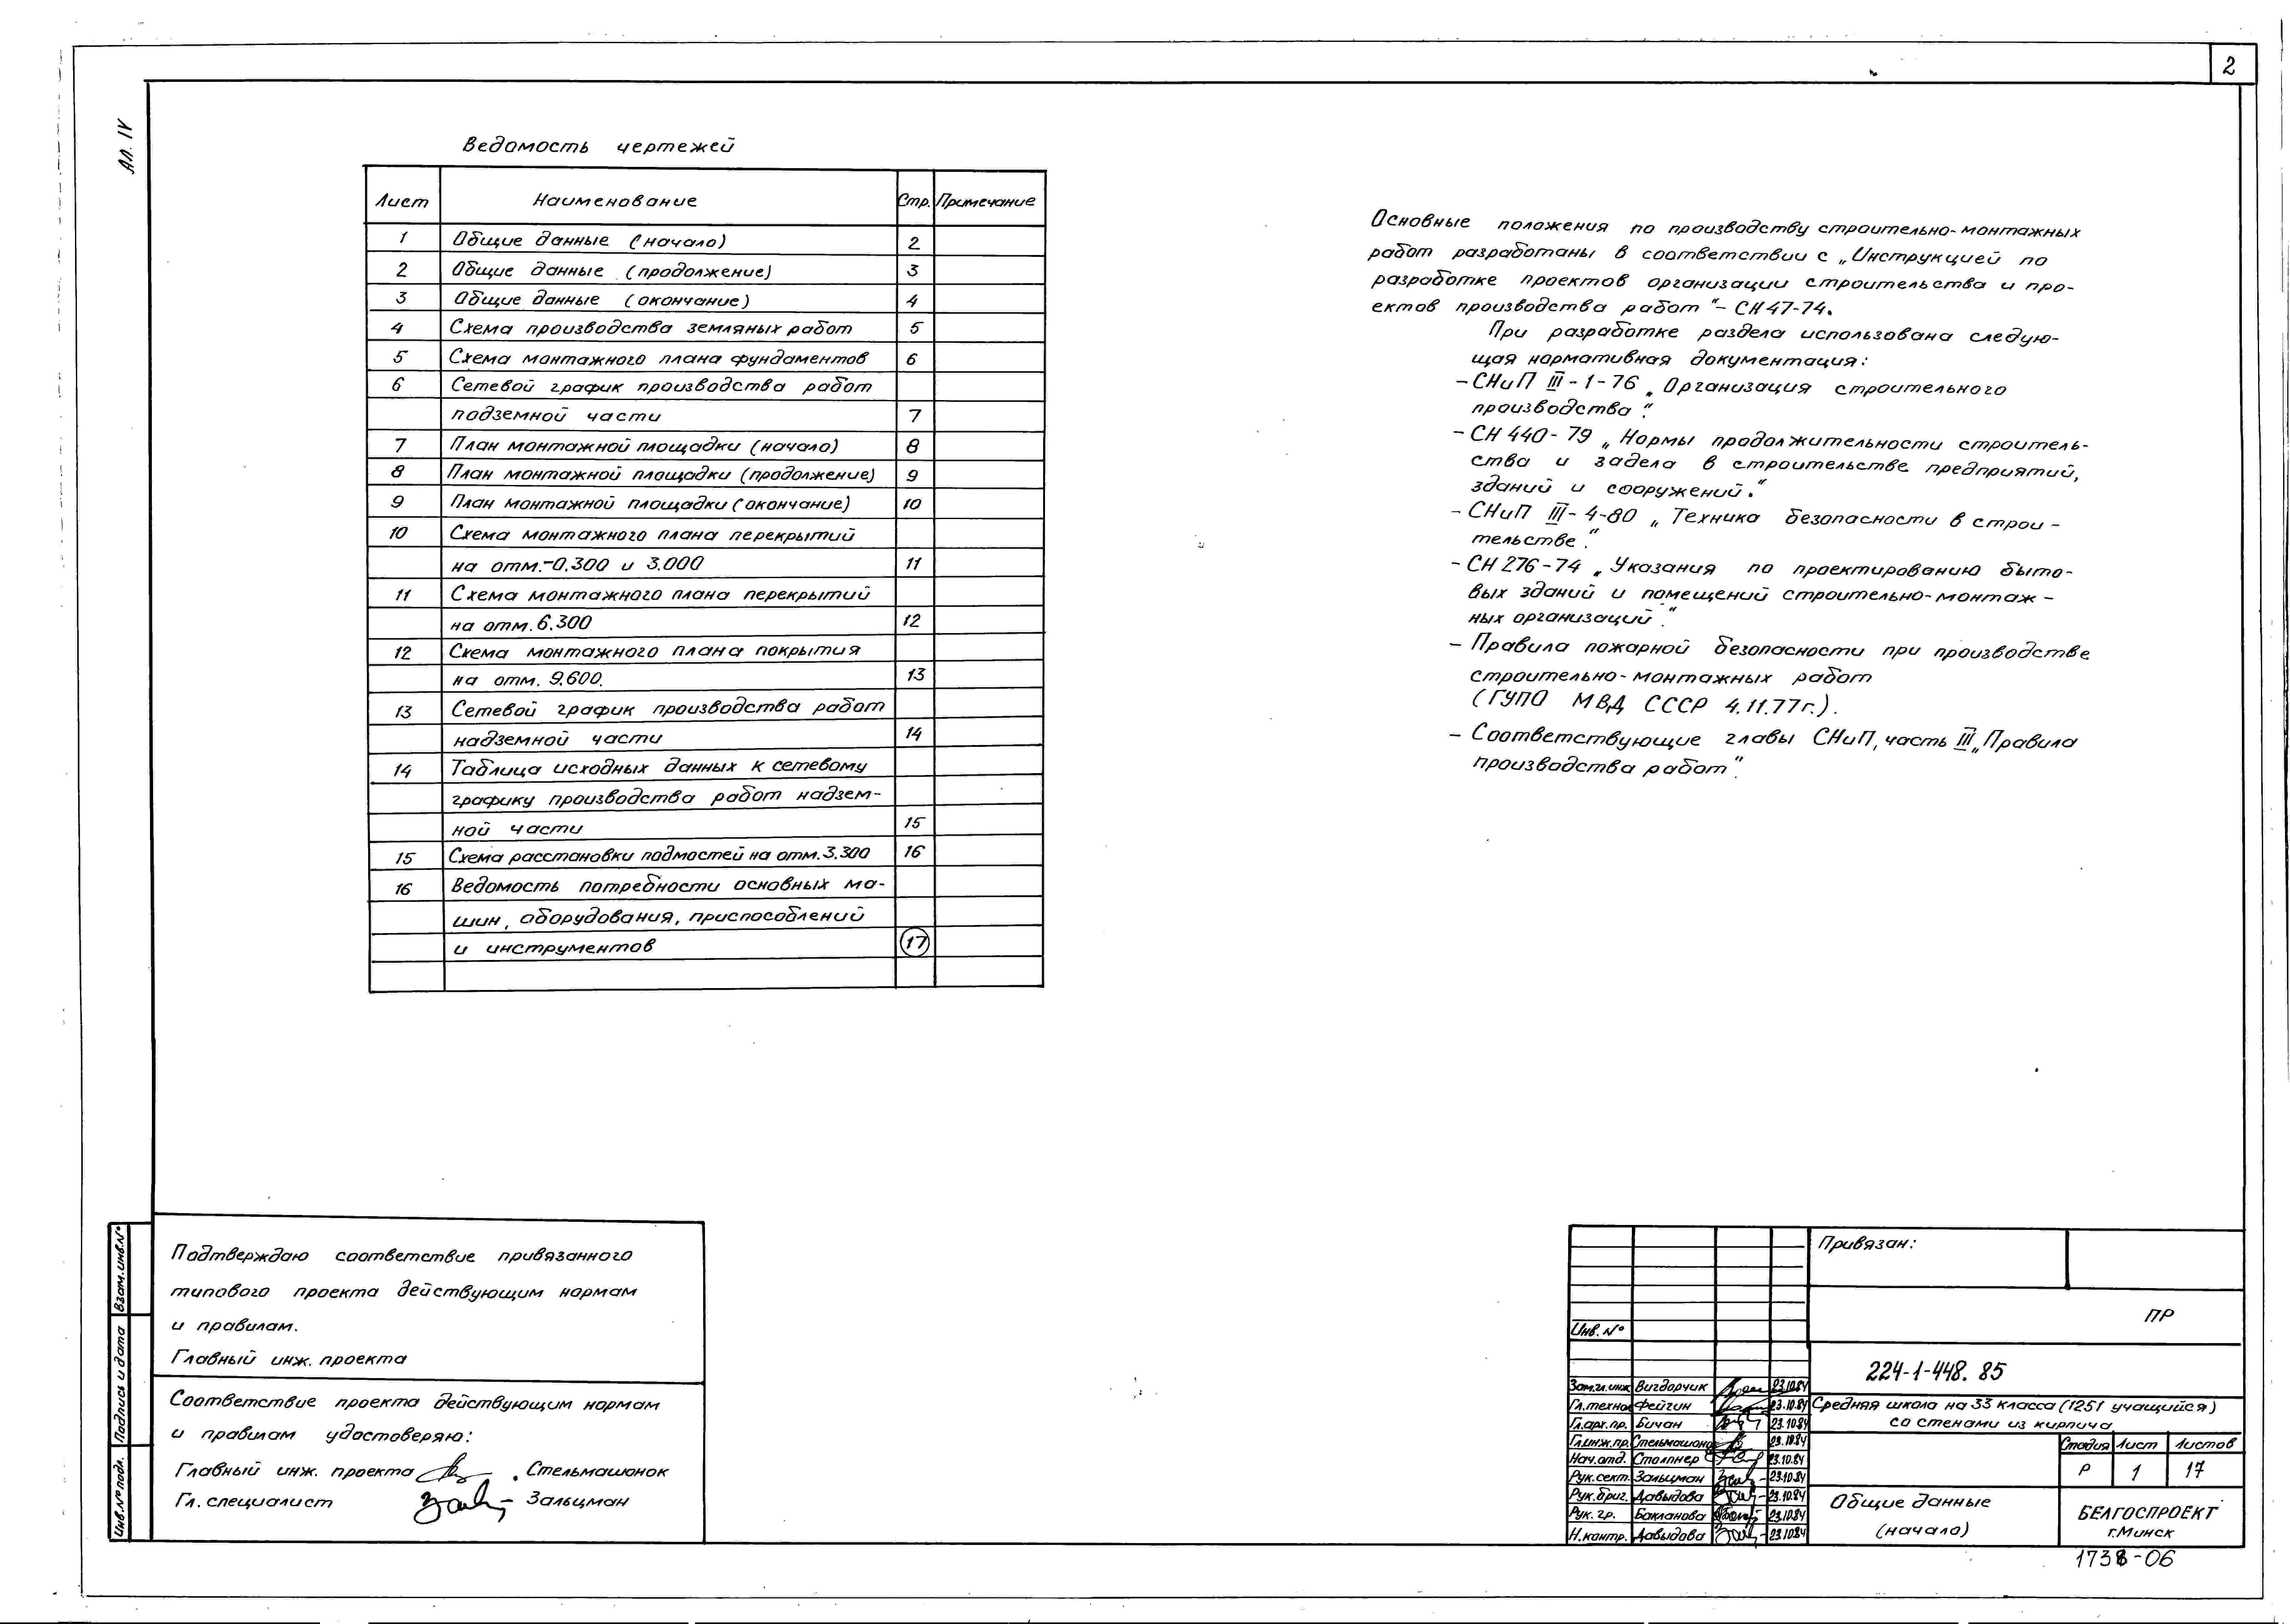 2
Ал. IV
Ведомость чертежей
Лист Наименование Стр. Примечание
1 Общие данные (начало) 2
2 Общие данные (продолжение) 3
3 Общие данные (окончание) 4
4 Схема производства земляных работ 5
5 Схема монтажного плана фундаментов 6
6 Сетевой график производства работ
подземной части 7
7 План монтажной площадки (начало) 8
8 План монтажной площадки (продолжение) 9
9 План монтажной площадки (окончание) 10
10 Схема монтажного плана перекрытий
на отм.-0.300 и 3.000 11
11 Схема монтажного плана перекрытий
на отм. 6.300 12
12 Схема монтажного плана покрытия
на отм. 9.600. 13
13 Сетевой график производства работ
надземной части 14
14 Таблица исходных данных к сетевому
графику производства работ надзем-
ной части 15
15 Схема расстановки подмостей на отм. 3.300 16
16 Ведомость потребности основных ма-
шин, оборудования, приспособлений
и инструментов 17
Основные положения по производству строительно-монтажных
работ разработаны в соответствии с „Инструкцией по
разработке проектов организации строительства и про-
ектов производства работ"- СН 47-74.
При разработке раздела использована следую-
щая нормативная документация:
- СНиП III-1-76 „Организация строительного
производства".
- СН 440-79 „Нормы продолжительности строитель-
ства и задела в строительстве предприятий,
зданий и сооружений."
- СНиП III-4-80 „Техника безопасности в строи-
тельстве".
- СН 276-74 „Указания по проектированию быто-
вых зданий и помещений строительно-монтаж-
ных организаций".
- Правила пожарной безопасности при производстве
строительно-монтажных работ
(ГУПО МВД СССР 4.11.77г.).
- Соответствующие главы СНиП, часть III „Правила
производства работ".
Подтверждаю соответствие привязанного
типового проекта действующим нормам
и правилам.
Главный инж. проекта
Соответствие проекта действующим нормам
и правилам удостоверяю:
Главный инж. проекта Стельмашонок
Гл. специалист Зальцман
Взам. инв. №
Подпись и дата
Инв. № подл.
Привязан:
Инв. №
ПР
224-1-448.85
Зам.гл.инж Вигдорчик 23.10.84
Гл.техно Фейгин 23.10.84
Гл.арх.пр. Бичан 23.10.84
Гл.инж.пр. Стельмашоно 23.10.84
Нач.отд. Столпнер 23.10.84
Рук.сект. Зальцман 23.10.84
Рук.бриг. Давыдова 23.10.84
Рук.гр. Бакланова 23.10.84
Н.контр. Давыдова 23.10.84
Средняя школа на 33 класса (1251 учащийся)
со стенами из кирпича
Стадия Лист Листов
Р 1 17
Общие данные
(начало)
БЕЛГОСПРОЕКТ
г.Минск
1738-06